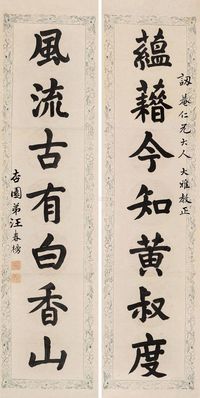 訒菴仁兄大人大雅教正
蘊藉今知黃叔度
風流古有白香山
杏園弟汪春榜